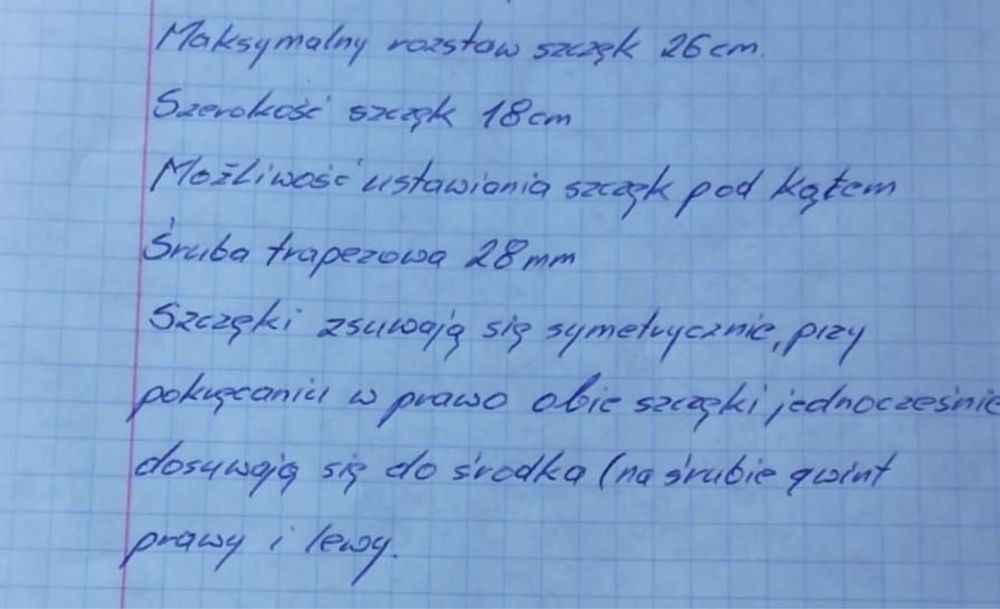 Maksymalny rozstaw szczęk 26cm.
Szerokość szczęk 18cm
Możliwość ustawiania szczęk pod kątem
Śruba trapezowa 28mm
Szczęki zsuwają się symetrycznie, przy
pokręcaniu w prawo obie szczęki jednocześnie
dosuwają się do środka (na śrubie gwint
prawy i lewy.